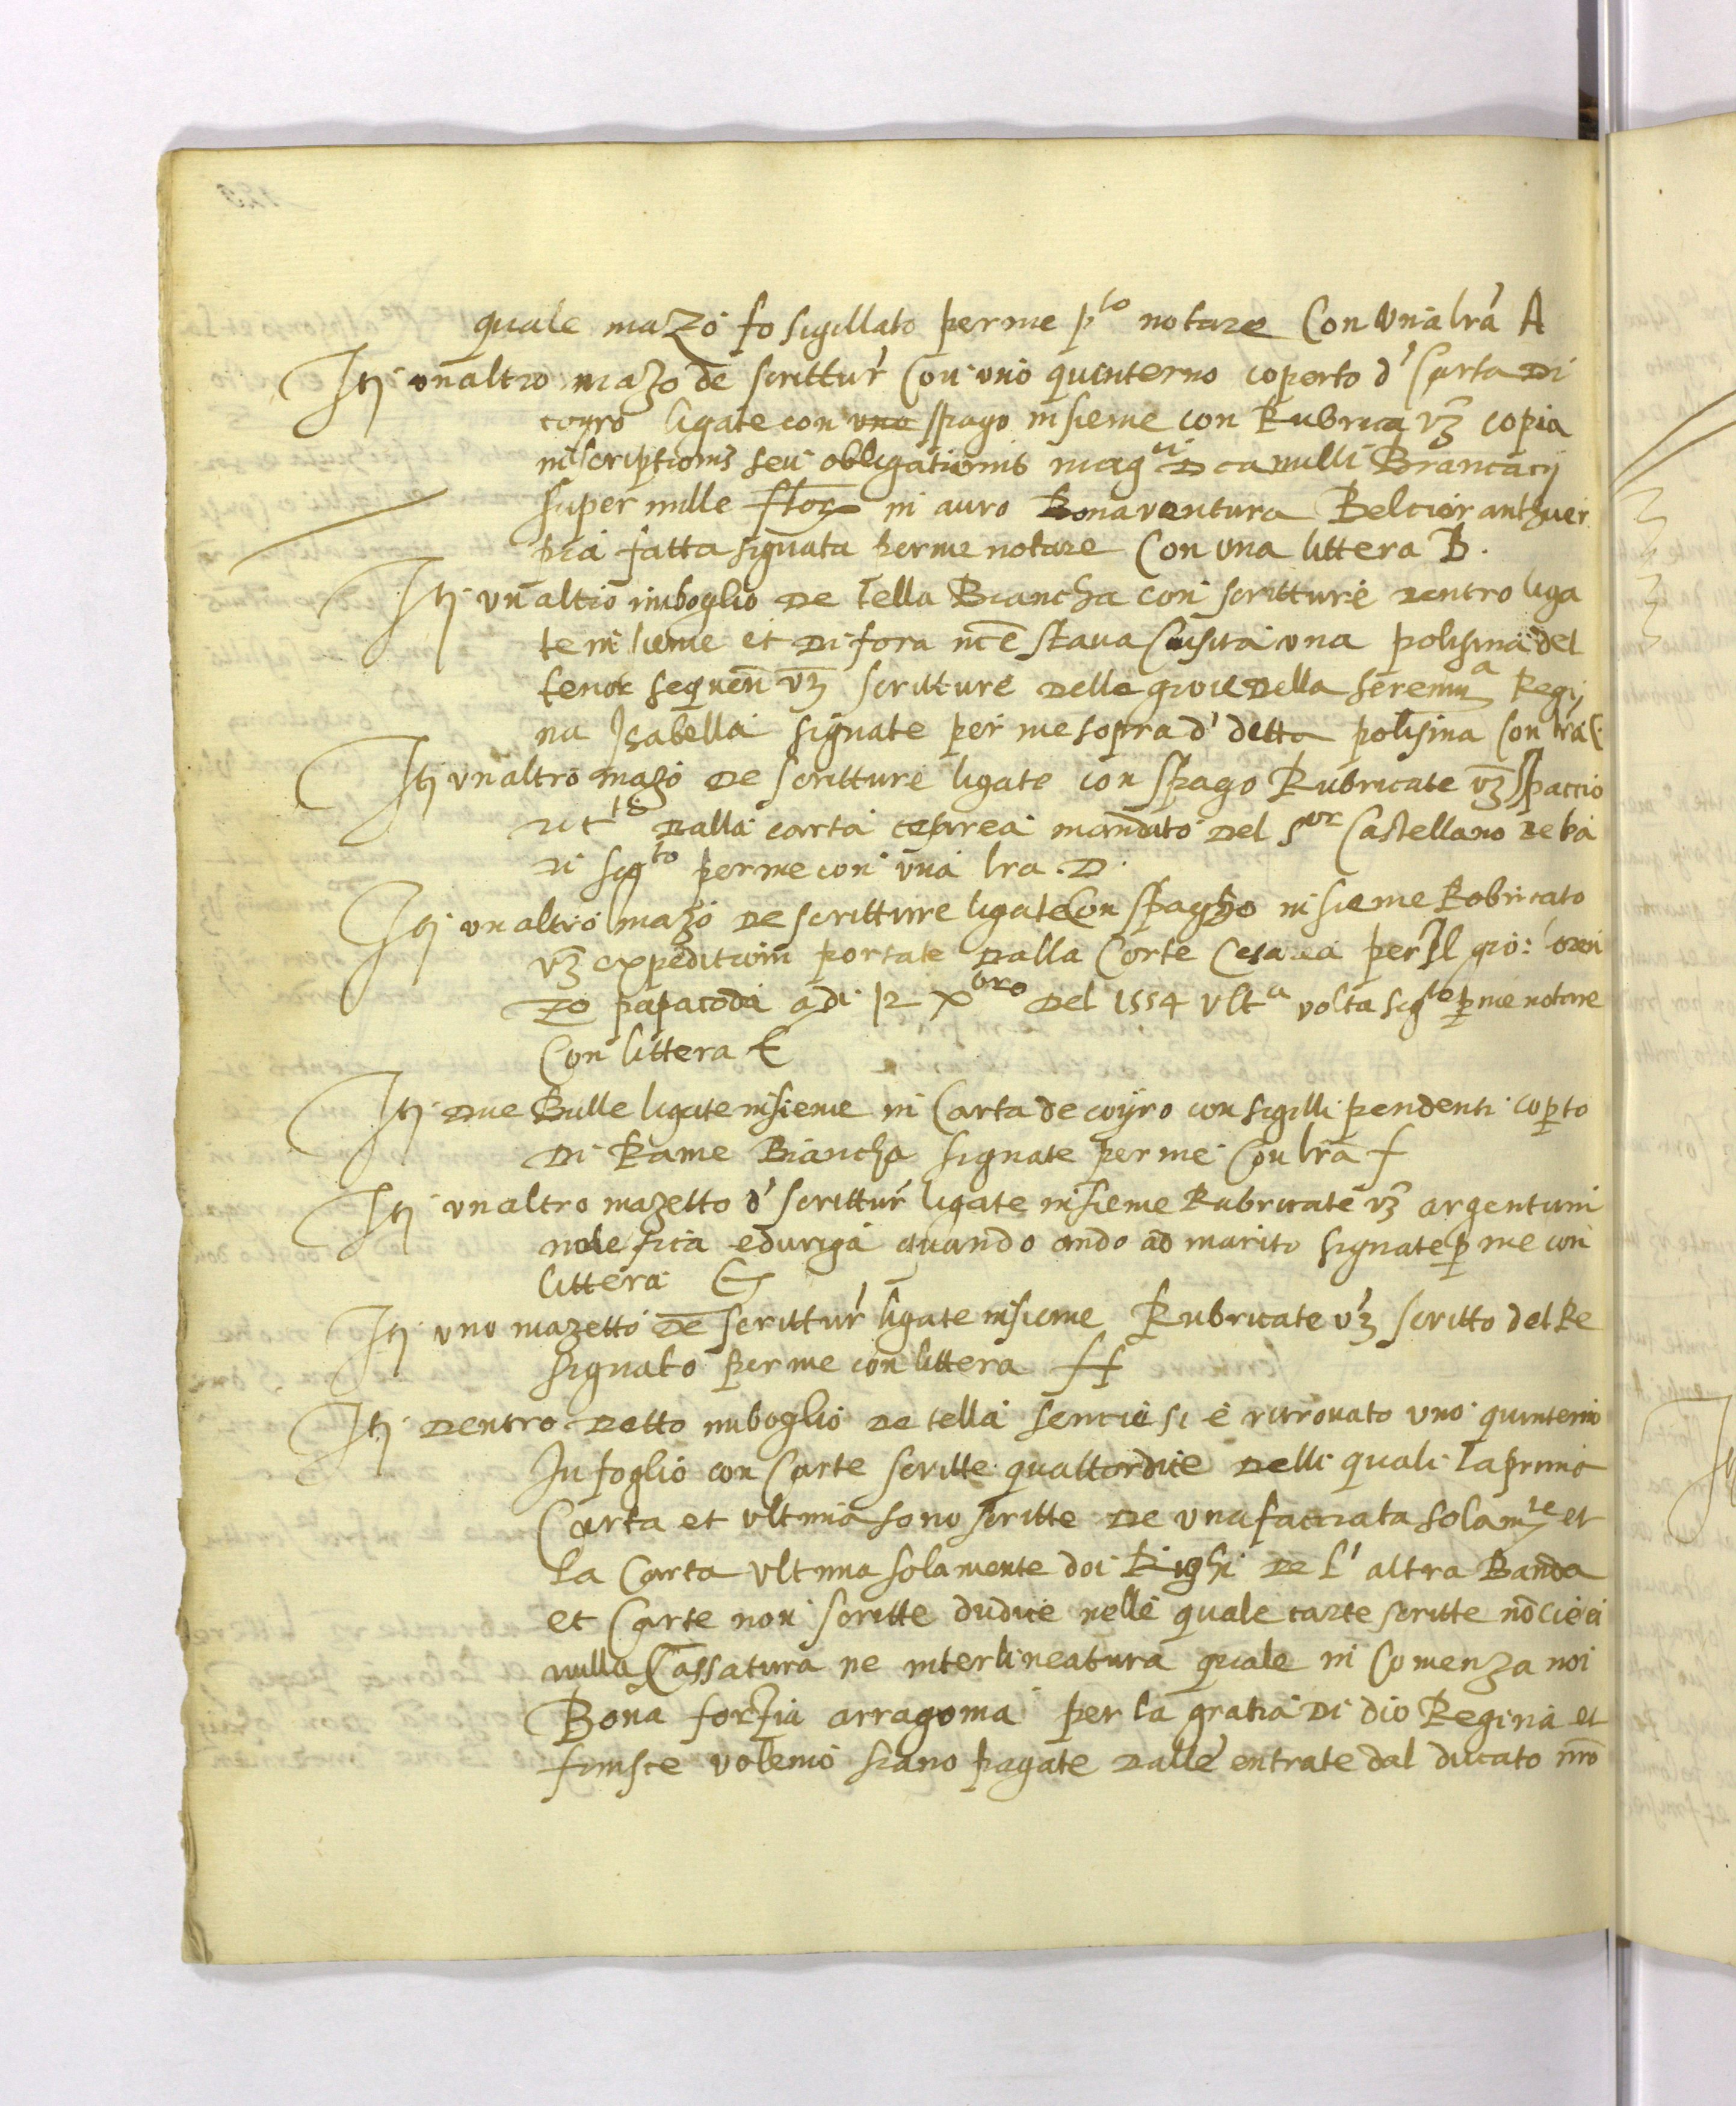 quale mazo fo sigillato per me p.to notare Con una lr̃a A
Itȷ̃ un altro mazo de scrittur' Con uno quinterno coperto d' Carta Di
coyro ligate con una spago insieme con Rubrica vz copia
inscriptionis seu obligationis mag.ci D camilli Brancacij
super mille in auro Bonaventura Belcior
pia fatta signata per me notare Con una littera B.
Itȷ̃ un altro imboglio De Tella Biancha con scritture Dentro liga
te insieme et Di fora nce stava Cusita una polisina del
tenor sequen̄ vz scritture Delle gioie Della seren.ma Regi
na Isabella signate per me sopra d' detta polisina Con lr̃a C
Itȷ̃ un altro mazo De scritture ligate con spago Rubricate vz spaccio
Dalla carta cesarea mandato Del S.or Castellano De ba
ri sig.to per me con una lra. D.
Itȷ̃ un altro mazo De scritture ligate Con spagho insieme Robricato
vz expeditioni portate Dalla Corte Cesarea per Il gio: loren
zo papacoda a di 12 Xbro Del 1554 ult.a volta sig.to p me notare
Con littera E
Itȷ̃ Due Bulle ligate insieme in Carta de coyro con sigilli pendenti cop.to
Di Rame Biancha signate per me Con lr̃a f
Itȷ̃ un altro mazetto d' scrittur' ligate insieme Rubricate vz argentum
quando ando ad marito signate p me con
littera G
Itȷ̃ uno mazetto De scrittur' ligate insieme Rubricate vz scritto del Re
signato per me con littera H
Itȷ̃ Dentro Detto imboglio De tella si è ritrovato uno quinterno
In foglio con Carte scritte quattordice Delli quali la prima
Carta et ultima sono scritte De una facciata solam.te et
la Carta ultima solamente doi Righi De l' altra Banda
et Carte non scritte dudice nelle quale carte scritte nō cie è
nulla Cassatura ne interlineatura quale in Comenza noi
Bona sforzia arragonia per la gratia Di dio Regina et
finisce volemo siano pagate Dalle entrate dal ducato nr̃o